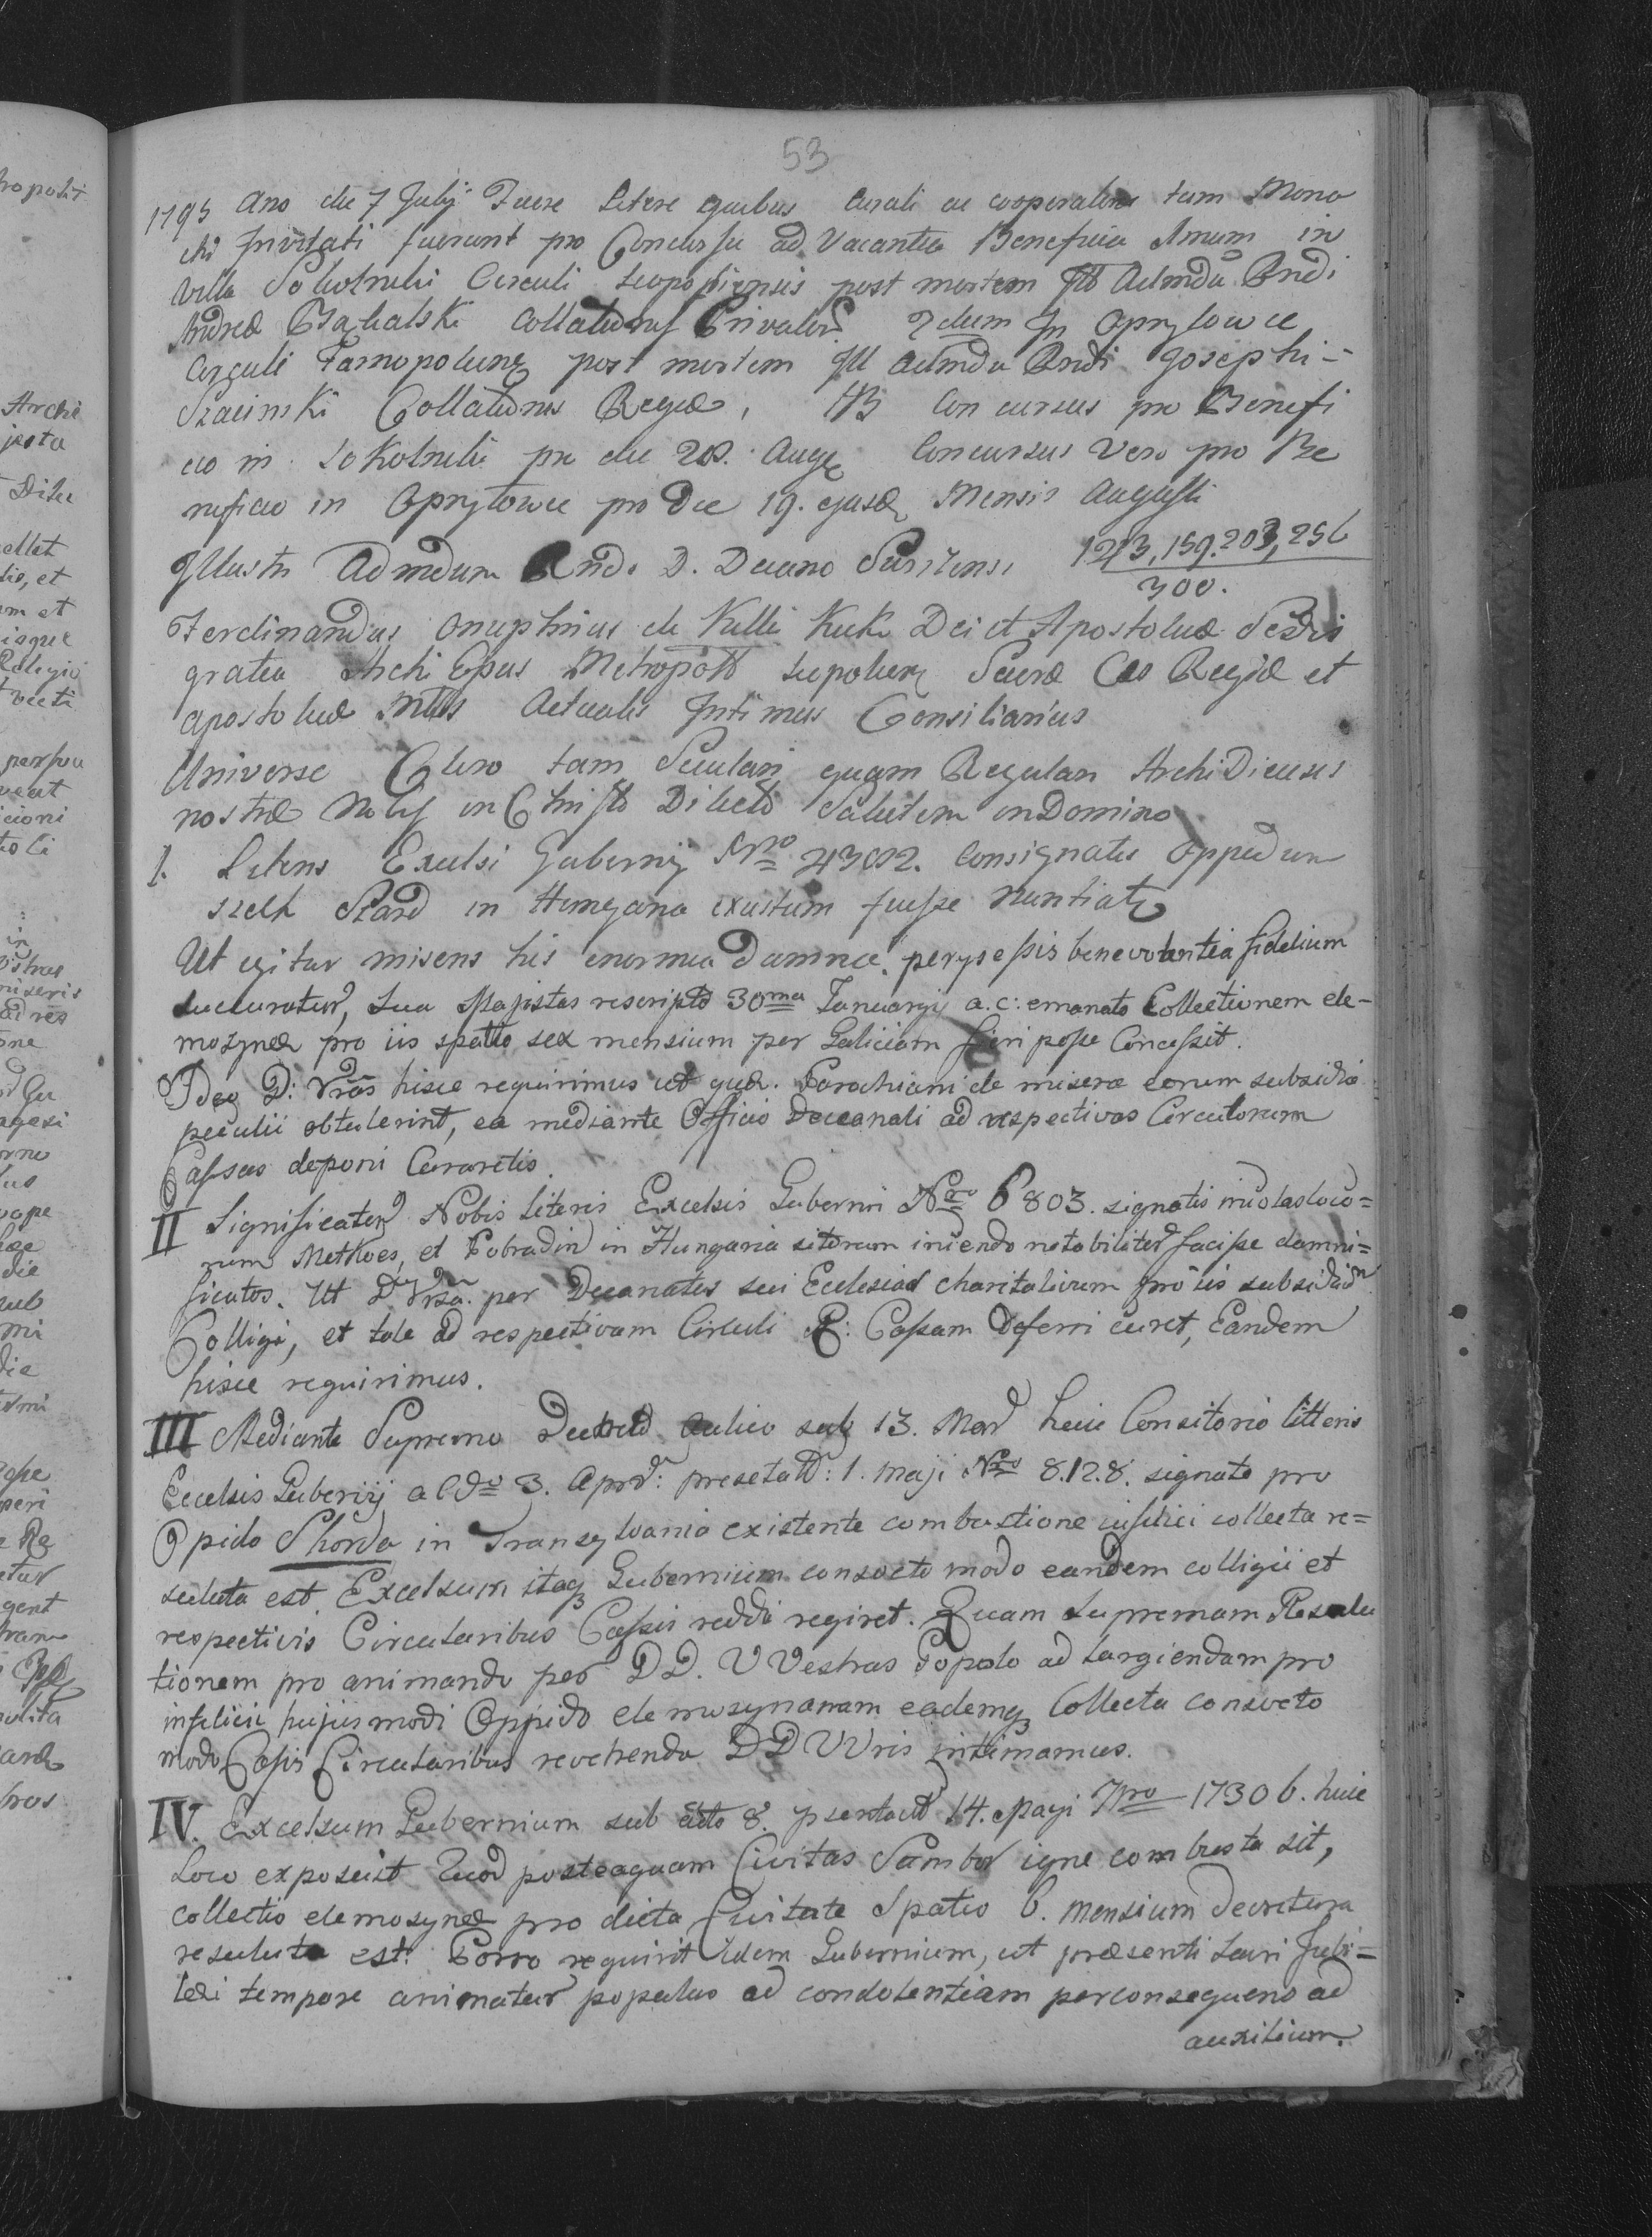 53
1795 Ano die 7 Julij Fuere Litere quibus Curati ac cooperatores tum Mona
chi Invitati fuerunt pro Concursu ad Vacantia Beneficia Unum in
Villa Sokolniki Circuli Leopoliensis post mortem Admdu Rndi
Andreæ Collationis Privatæ. Idem In Oprylowce
Circuli Tarnopoliens post mortem Ill Admdu Rndi Josephi-
Szacinski Collationis Regiæ, Concursus pro Benefi
cio in Sokolniki pro die 28. Aug Concursus Vero pro Be
neficio in Oprylowce pro Die 19. ejusd Mensis Augusti
Illustri Admdum Rndo D. Decano 159. 203, 256
300.
Ferdinandus Onuphrius de Kiki Dei et Apostolicæ Sedis
gratia Archi Epus Metropott Leopolien Sacræ Cæs Regiæ et
Apostolicæ Mttis Actualis Intimus Consiliarius
Universo Clero tam Seculari quam Regulari ArchiDicesis
nostræ Nobis in Christo Dilecto Salutem in Domino
1. Literis Excelsi Gubernij Nro consignatis Oppidum
Szard in Hungaria exustum fuisse nuntiat
Ut igitur miseris his enormia Damna perpessis benevolentia fidelium
succuratur, Sua Majestas rescripto 30ma Januarij a.c: emanato Collectionem ele-
mosynæ pro iis spatio sex mensium per Galiciam fieri posse Concessit.
Ideo D: Vras hisce requirimus ut quæ. Parochiani de misera eorum subsidia
peculii obtulerint, ea mediante Officio Decanali ad respectivas Circulorum
Cassas deponi Curaretis.
II Significatur Nobis literis Excelsis Gubernii Nro 6803. signatis incolas loco=
rum Methoes, et Pobradin in Hungaria sitorum incendo notabiliter facisse damni=
ficatos. Ut D. Vra. per Decanatus sui Ecclesias charitativum pro iis subsidium
Colligi, et tale ad respectivam Circuli R: Cassam Deferri curet, Eandem
hisce requirimus.
III Mediante Supremo Decreto Aulico sub 13. Mar huic Consitorio litteris
Excelsis Guberij a Cdo 3. Apr: presetatt: 1. Maji Nro 8.12.8. signato pro
Opido Thorda in Transylvania existente combustione infelici collecta re=
soluta est. Excelsum itaq Gubernium consveto modo eandem colligi et
respectivis Circularibus Cassis reddi regiret. Quam Supremam Resolu
tionem pro animando per DD. VVestras Popolo ad largiendam pro
infelici hujusmodi Oppido elemosynanam eademq Collecta consveto
modo Casis Circularibus revehenda DD VVris intimamus.
IV. Excelsum Gubernium sub dto 8. psentatt 14. Maji Nro 17306. huic
Loco exposuit Quod posteaquam Civitas Sambor igne combusta sit,
collectio elemosynæ pro dicta Civitate Spatio 6. mensium Decretera
resuluta est. Porro requirit idem Gubernium, ut præsenti Sacri Jubi=
lei tempore animatur populus ad condolentiam perconsequens ad
auxilium.